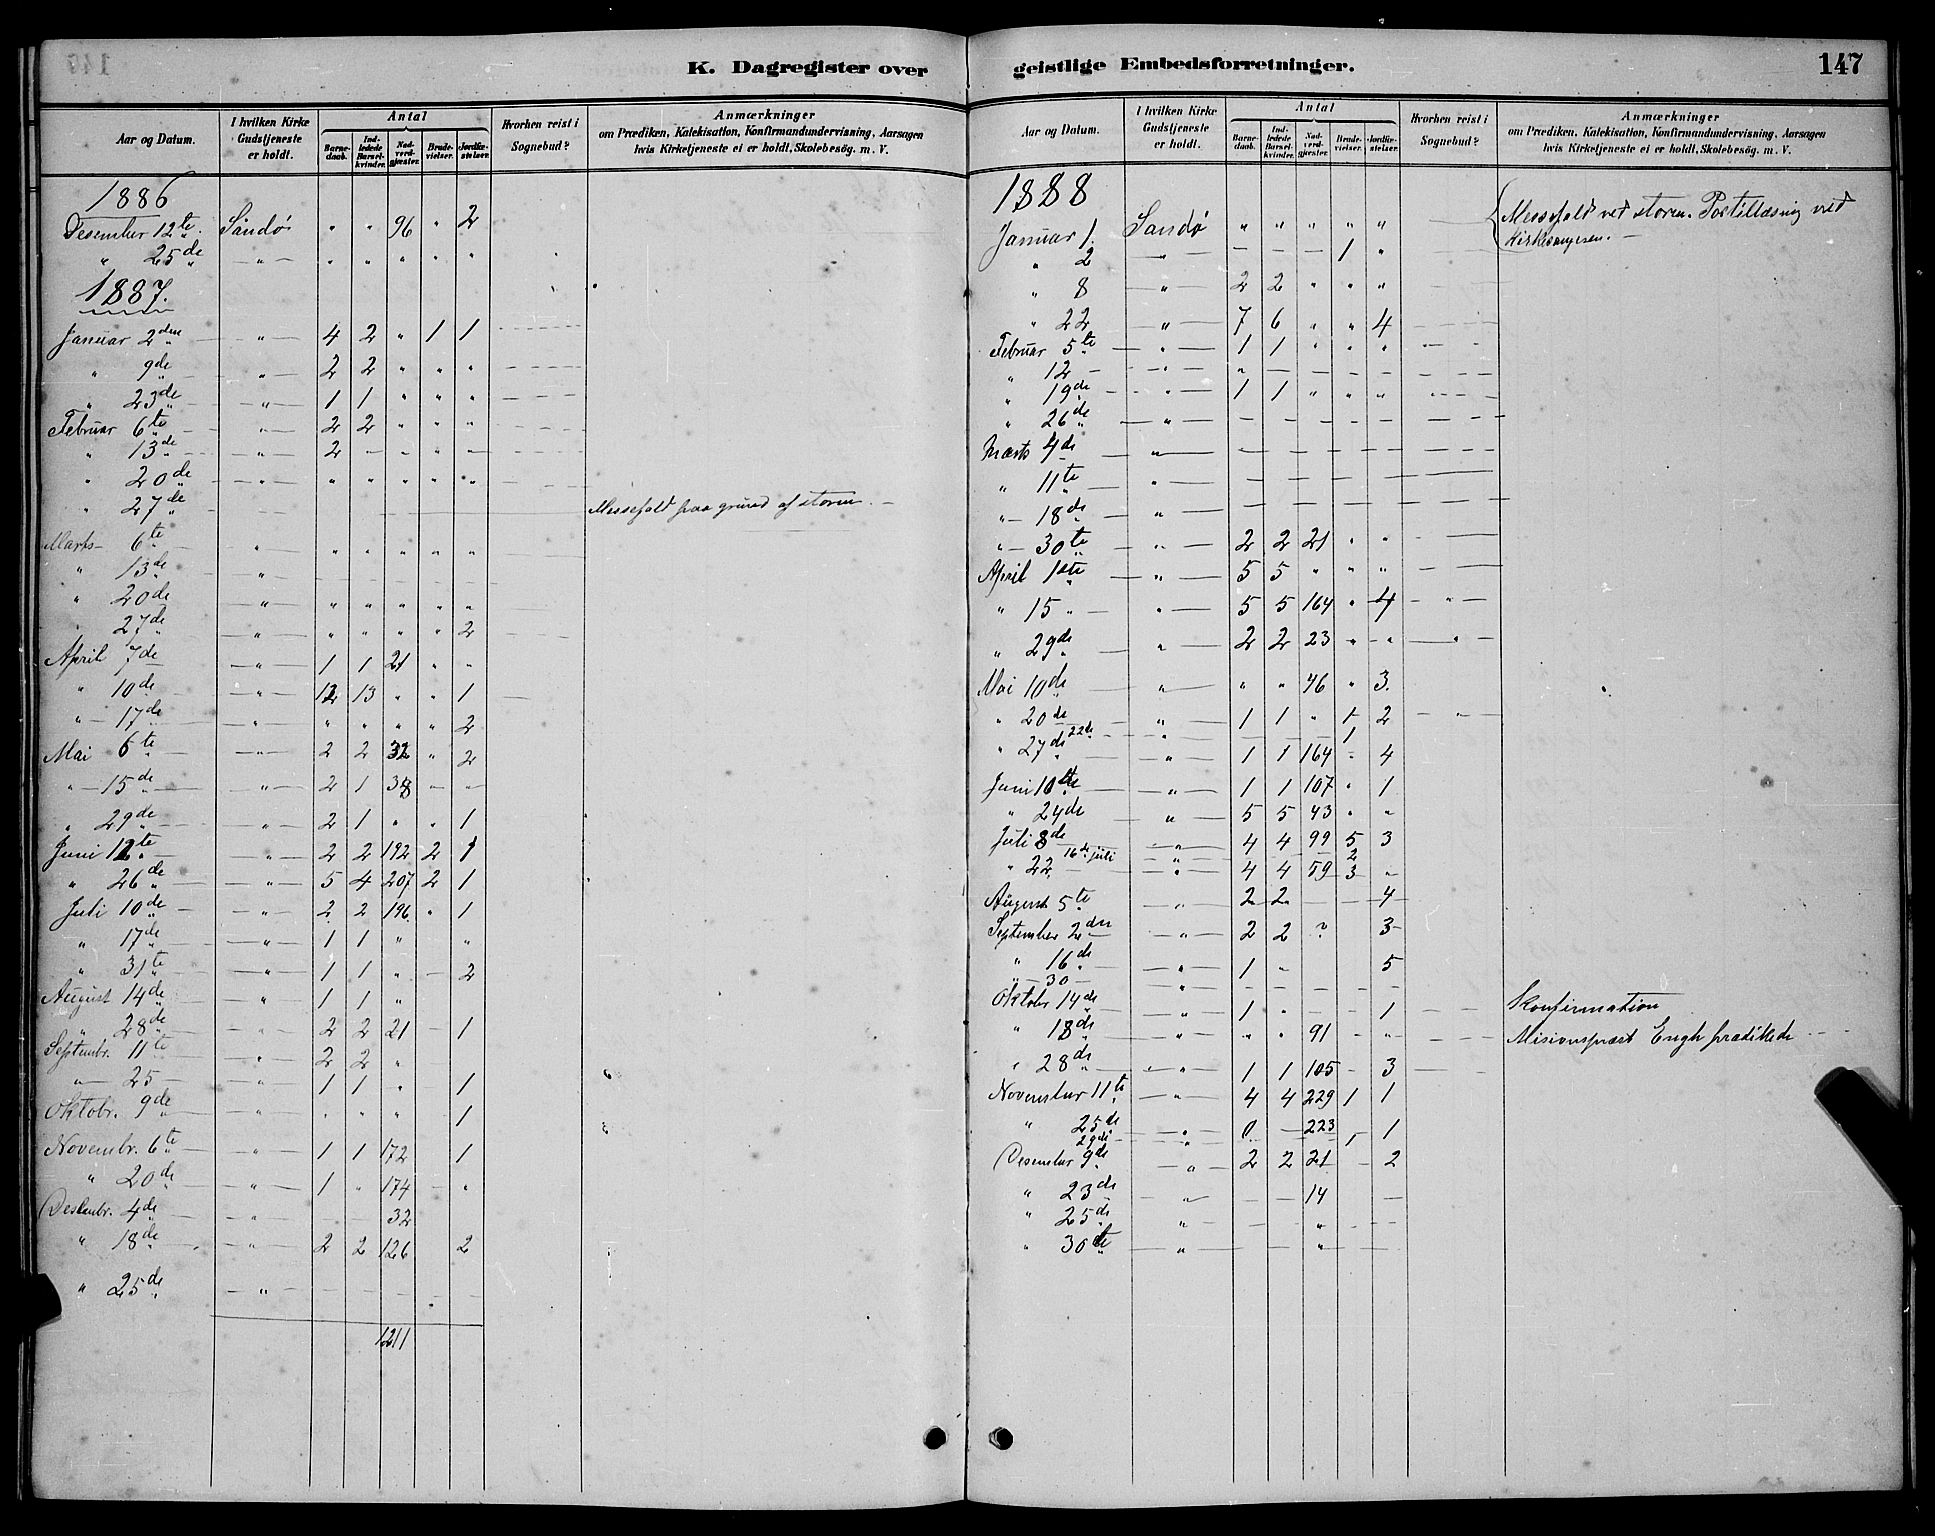 K. Dagregister over
Aar og Datum.
I hvilken Kirke Gudstjeneste er holdt.
Antal
Barnedaab.
Indledede Barselkvinder.
Nadverdgjæster.
Brudevielser.
Jordfæstelser.
Hvorhen reist i Sognebud?
Anmærkninger
om Prædiken, Katekisation, Konfirmandundervisning, Aarsagen
hvis Kirketjeneste ei er holdt, Skolebesøg. m. V.
1886
Desember 12te. Sandø " " 96 " 2
" 25de — " — " " " " "
1887.
Januar 2den — " — 4 2 " 1 1
" 9de — " — 2 2 " " "
" 23de — " — 1 1 " " "
Februar 6te — " — 2 2 " " "
" 13de — " — 2 — " " —
" 20de — " — " " " " "
" 27de — " — Messefald paa grund af storm. —
Marts 6te — " — " " " " "
" 13de — " —
" 20de — " — " " " " "
" 27de — " — " " " " 2
April 7de — " — 1 1 21 " "
" 10de — " — 12 13 " " 1
" 17de — " — " " " " 2
Mai 6te — " — 2 2 32 " 2
" 15de — " — 2 1 38 — —
" 29de — " — 2 1 " " 1
Juni 12te — " — 2 2 192 2 1
" 26de — " — 5 4 207 2 1
Juli 10de — " — 2 2 196 " 1
" 17de — " — 1 1 " "
" 31te — " — 1 1 " — 2
August 14de — " — 1 1 "
" 28de — " — 2 2 21 — 1
Septembr. 11te — " — 2 2 "
" 25 — " — 1 1 " 1
Oktobr. 9de — " — " " " 1
Novembr. 6te — " — 1 1 172 1
" 20de — " — 1 " 174 — "
Desembr. 4de — " — — — 32
" 18de — " — 2 2 126 2
" 25de — " — — — — — —
1211
geistlige Embedsforretninger.
147
Aar og Datum.
I hvilken Kirke Gudstjeneste er holdt.
Antal
Barnedaab.
Indledede Barselkvinder.
Nadverdgjæster.
Brudevielser.
Jordfæstelser.
Hvorhen reist i Sognebud?
Anmærkninger
om Prædiken, Katekisation, Konfirmandundervisning, Aarsagen
hvis Kirketjeneste ei er holdt, Skolebesøg. m. V.
1888
Januar 1. Sandø " " " " " Messefald ved storm. Postillæsnig ved
Kirkesangeren. —
" 2 — " — — — — 1 "
" 8 — " — 2 2 " " "
" 22 — " — 7 6 " " 4
Februar 5te — " — 1 1 " " "
" 12 — " — " — — — —
" 19de — " — 1 1 " " "
" 26de — " — — — — — —
Marts 4de " — — — — — —
" 11te — " — — — — — —
" 18de — " — — — — — —
" 30te " — 2 2 21 " "
April 1ste — " — 5 5 " " "
" 15 " — " — 5 5 164 " 4
" 29de " — 2 2 23 " "
Mai 10de " — " " 46 " 3.
" 20de — " — 1 1 " 1 2
22de — " — 1
" 27de " — 1 1 164 — 4
Juni 10de — " — 1 1 107 " 1
" 24de " — 5 5 43 " "
Juli 8de — " — 4 4 99 5 3
16de juli — " — 2
" 22 — " — 4 4 59 3 "
August 5te " — 2 2 — — 4
September 2den — " — 2 2 ? 3
" 16de — " — 1 " 5
" 30 — " — — — — — —
Oktobr 14de — " — 1 " 1 Konfirmation
" 18de — " — " " 91 — " Misionspræst Engh prædikede
" 28de — " — 1 1 105 — 3
November 11te — " — 4 4 229 1 1
" 25de — " — 0 — 223 1
29de — " —
Desember 9de — " — 2 2 21 — 2
" 23de — " — — — 14 —
" 25de " — — — " — —
" 30te — " — — — " — —